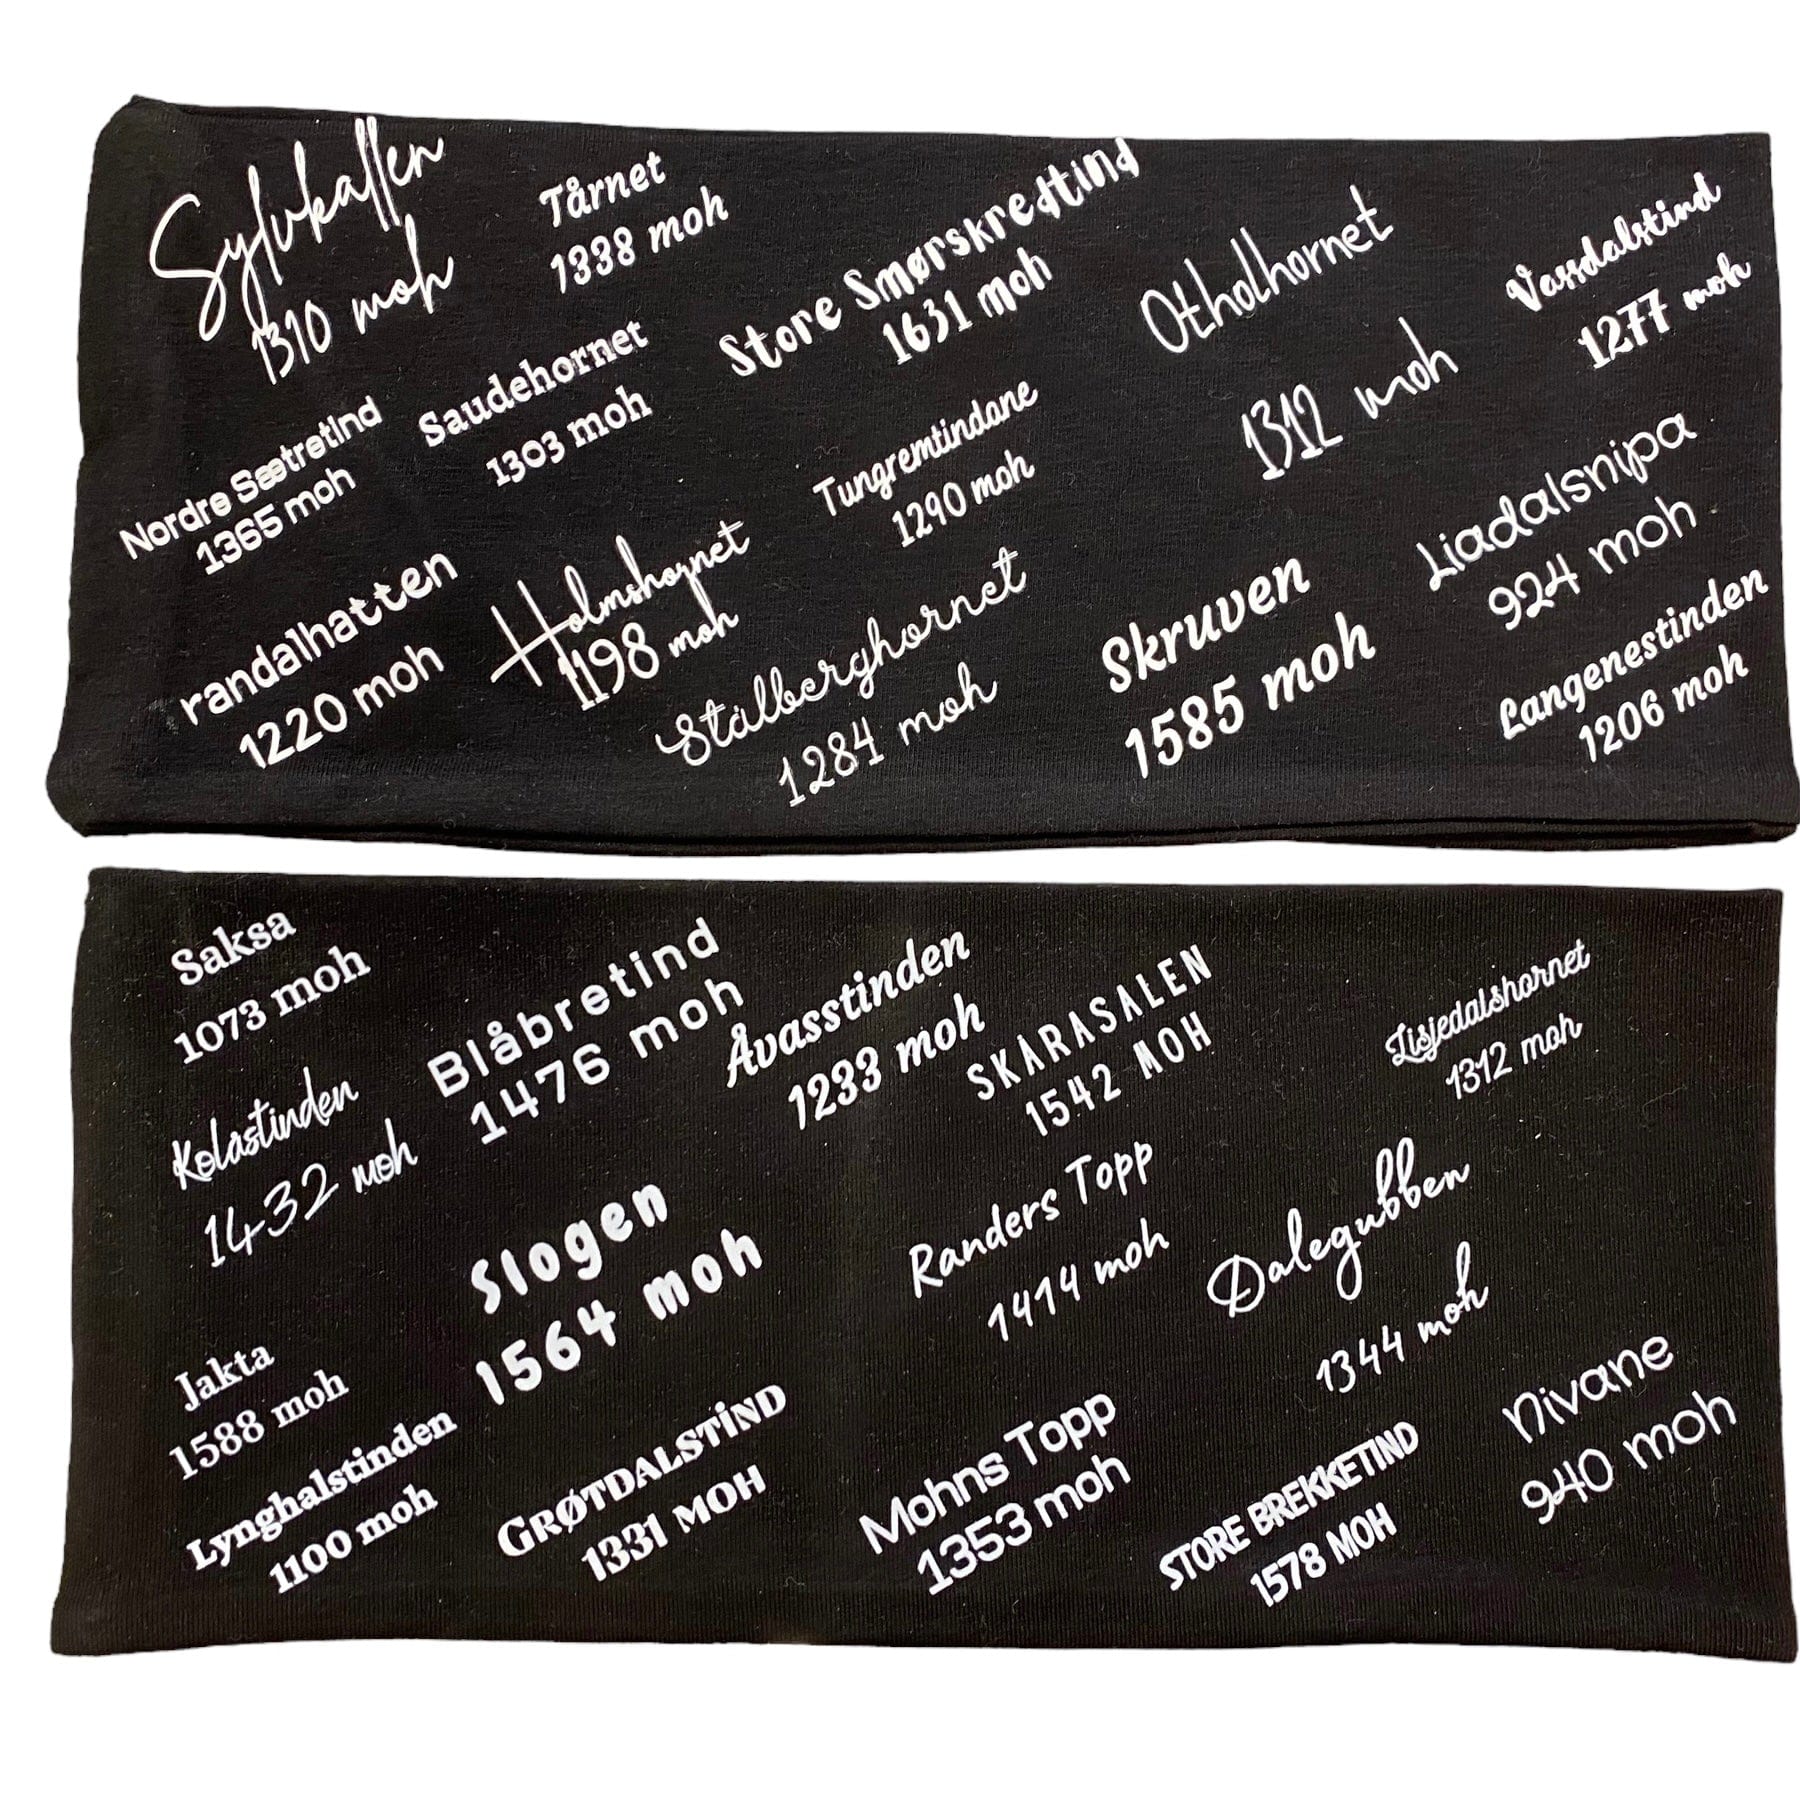 Sylvkallen
1310 moh
Tårnet
1338 moh
Store Smørskredtind
1631 moh
Otholhornet
1312 moh
Vassdalstind
1277 moh
Nordre Sætretind
1365 moh
Saudehornet
1303 moh
Tungremtindane
1290 moh
Liadalsnipa
924 moh
randalhatten
1220 moh
Holmshornet
1198 moh
Stålberghornet
1284 moh
Skruven
1585 moh
Langenestinden
1206 moh
Saksa
1073 moh
Blåbretind
1476 moh
Åvasstinden
1233 moh
SKÅRASALEN
1542 MOH
Lisjedalshornet
1312 moh
Kolåstinden
1432 moh
Slogen
1564 moh
Randers Topp
1414 moh
Dalegubben
1344 moh
Jakta
1588 moh
Lynghalstinden
1100 moh
GRØTDALSTIND
1331 MOH
Mohns Topp
1353 moh
STORE BREKKETIND
1578 MOH
Nivane
940 moh